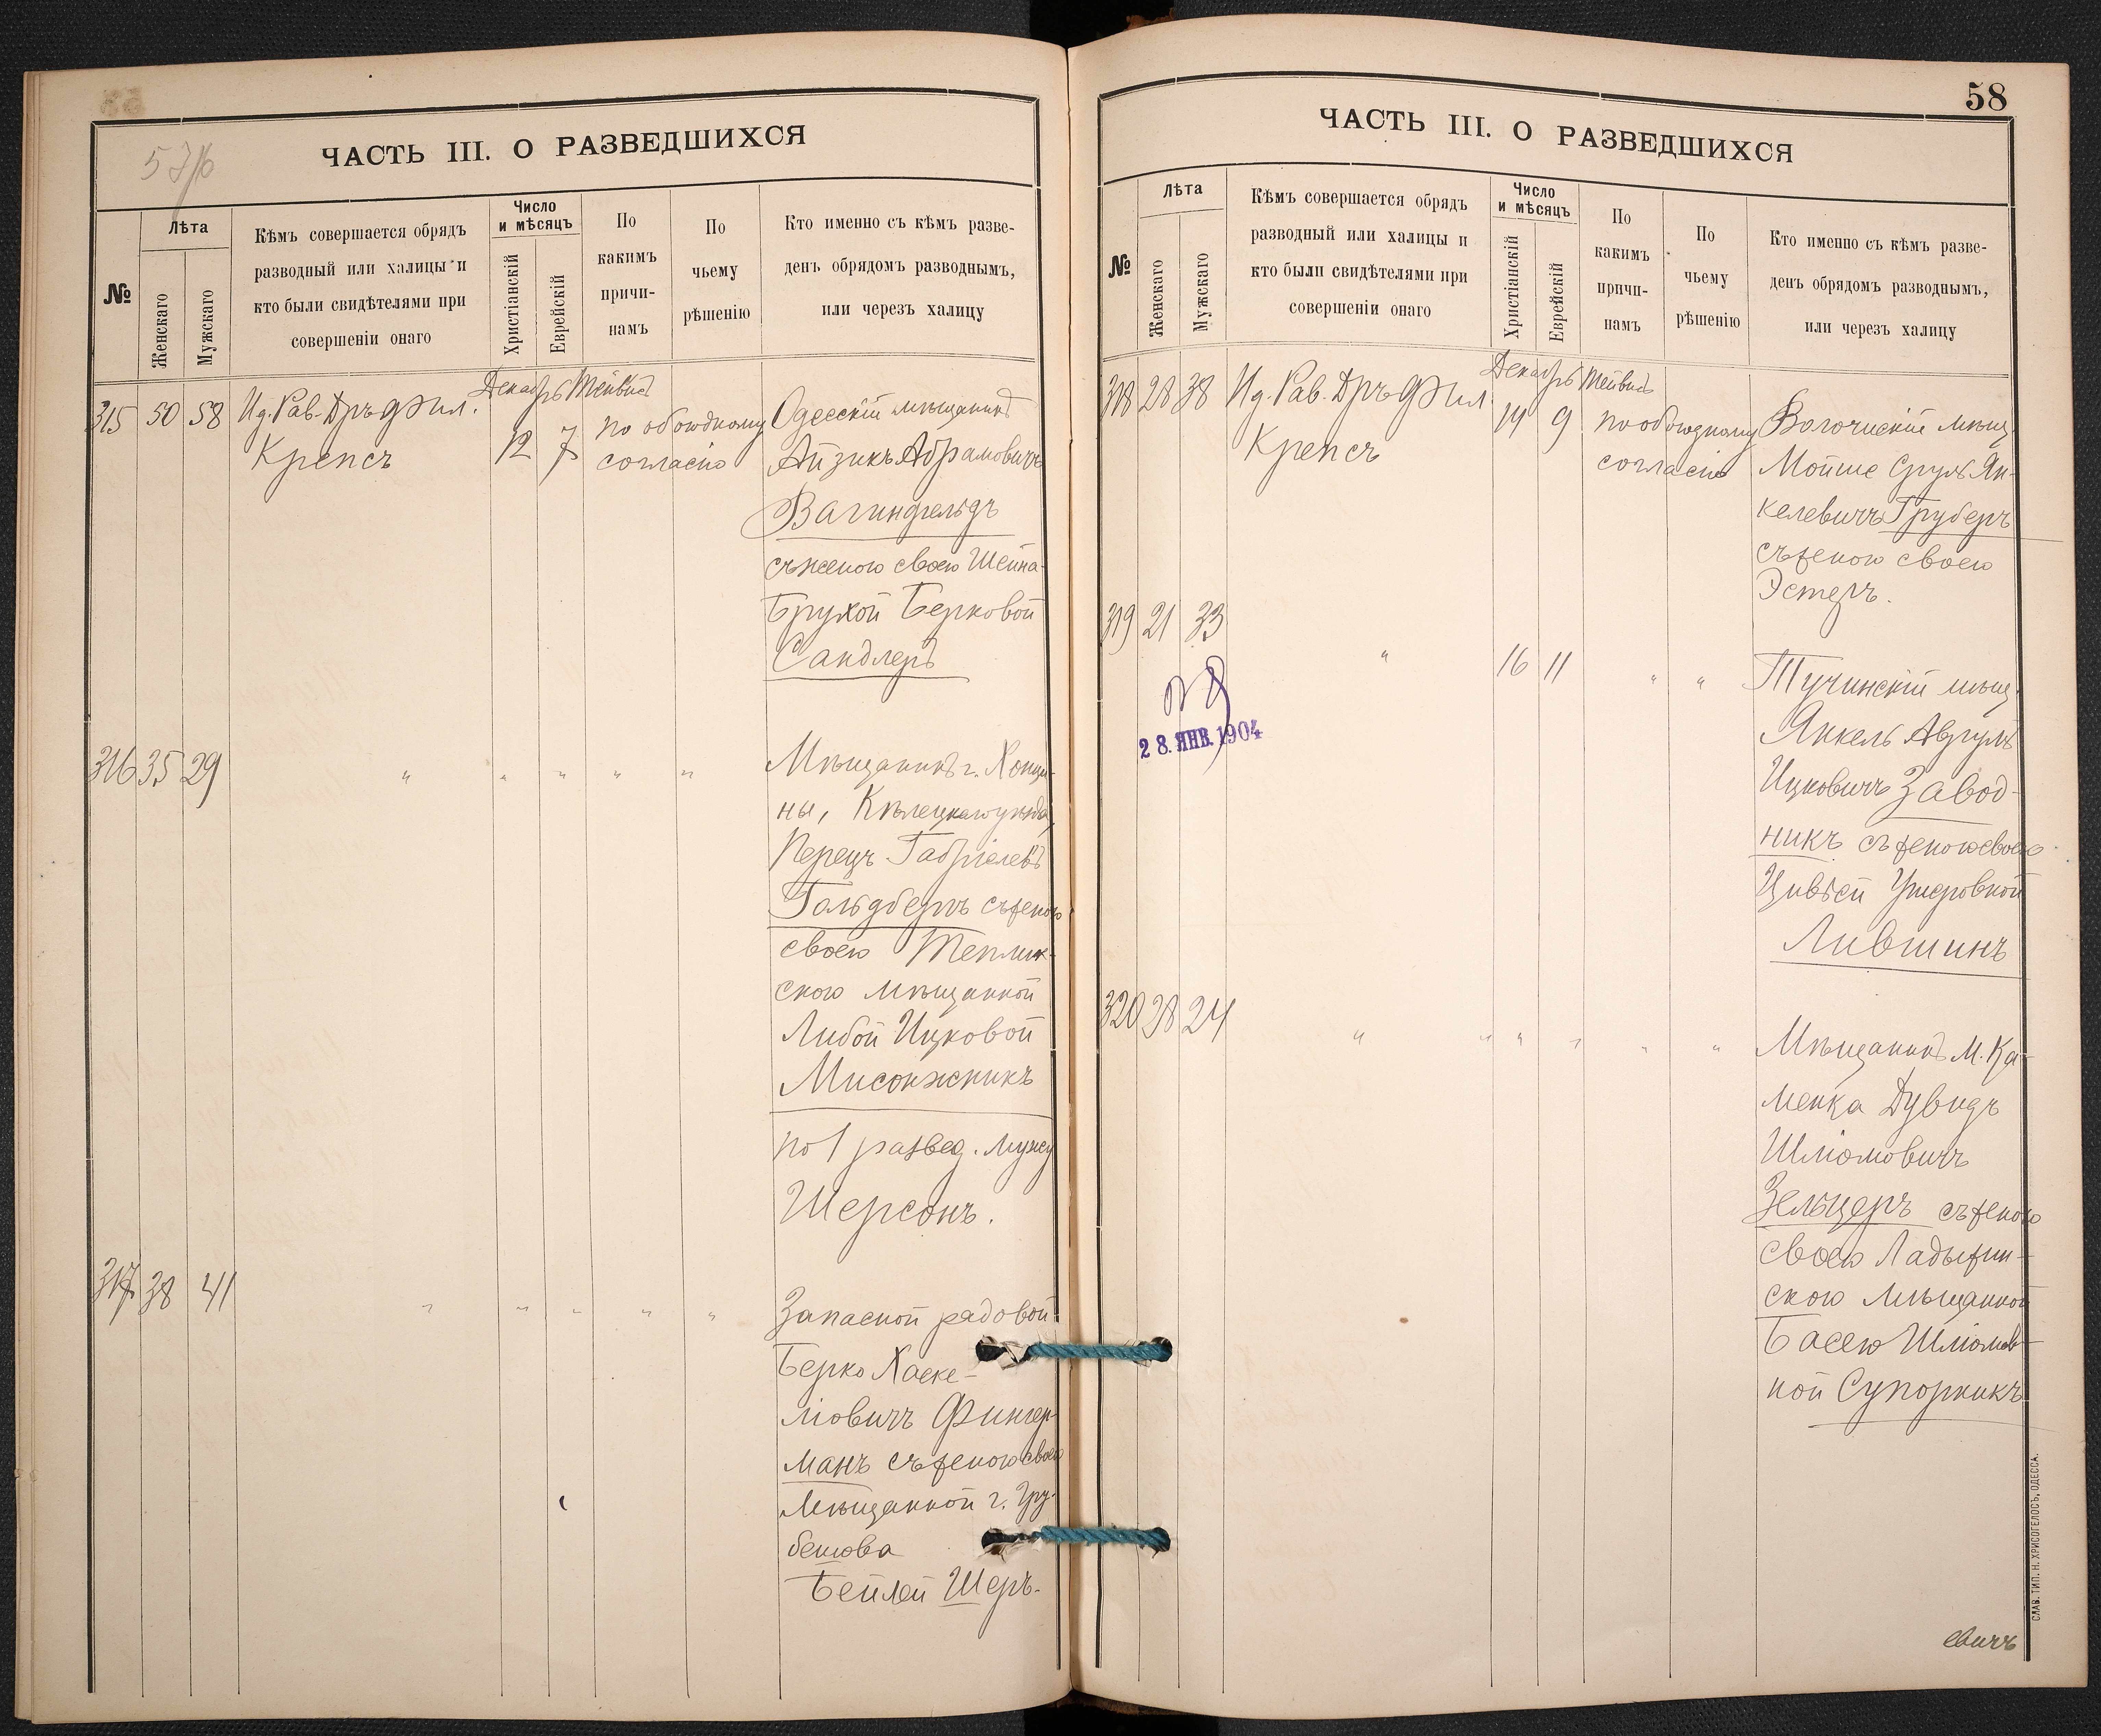 57/б
ЧАСТЬ III. О РАЗВЕДШИХСЯ
№
Лѣта
Женскаго
Мужскаго
Кѣмъ совершается обрядъ
разводный или халицы и
кто были свидѣтелями при
совершеніи онаго
Число
и мѣсяцъ
Христіанскій
Еврейскій
По
какимъ
причи-
намъ
По
чьему
рѣшенію
Кто именно съ кѣмъ разве-
денъ обрядомъ разводнымъ,
или черезъ халицу
315 50 58 Ид. Рав. Дръ Фил.
Крепсъ
Декабрь Тейвисъ
12 7
по обоюдному
согласію
Одесскій мѣщанинъ
Айзикъ Абрамовичъ
Вагинфельдъ
съ женою своею Шейна-
Брухой Берковой
Сандлеръ
316 35 29 " " " " "
Мѣщанинъ г.
ны, Кѣлецкаго уѣзда,
Перецъ Габріелевъ
Гольдбергъ съ женою
своею Теплик-
скою мѣщанкой
Либой Ицковой
Мисонжникъ
по 1 развед. мужу
Шерсонъ.
317 38 41 " " " " "
Запасной рядовой
Берко Хаске-
ліовичъ Фингер-
манъ съ женою своею
мѣщанкой г. Гру-
бешова
Бейлей Шеръ-
58
ЧАСТЬ III. О РАЗВЕДШИХСЯ
№
Лѣта
Женскаго
Мужскаго
Кѣмъ совершается обрядъ
разводный или халицы и
кто были свидѣтелями при
совершеніи онаго
Число
и мѣсяцъ
Христіанскій
Еврейскій
По
какимъ
причи-
намъ
По
чьему
рѣшенію
Кто именно съ кѣмъ разве-
денъ обрядомъ разводнымъ,
или черезъ халицу
318 28 38 Ид. Рав. Дръ Фил.
Крепсъ
Декабрь Тейвисъ
14 9
по обоюдному
согласію
Волочискій мѣщ.
Мойше Сруль Ян-
келевичъ Груберъ
съ женою своею
Эстеръ.
319 21 33 " 16 11 " "
28. ЯНВ. 1904
Тучинскій мѣщ.
Янкель Авгумъ
Ицковичъ Завод-
никъ съ женою своею
Цивіей Ушеровной
Лившинъ
320 28 24 " " " " " "
Мѣщанинъ м. Ка-
менка Дувидъ
Шліомовичъ
Зельцеръ съ женою
своею Ладыжин-
скою мѣщанкой
Басею Шліомов-
ной Супорникъ
евичъ
СЛАВ. ТИП. Н. ХРИСОГЕЛОСЪ, ОДЕССА.